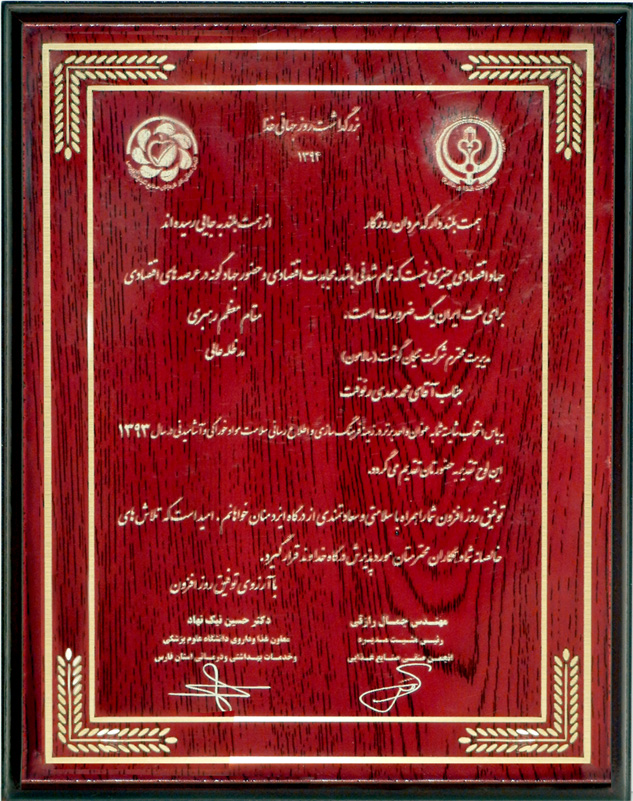 بزرگداشت روز جهانی غذا
۱۳۹۴
همت بلند دار که مردان روزگار از همت بلند به جایی رسیده اند
جهاد اقتصادی چیزی نیست که تمام شدنی باشد، مجاهدت اقتصادی و حضور جهادگونه در عرصه های اقتصادی
برای ملت ایران یک ضرورت است.
مقام معظم رهبری
مد ظله عالی
مدیریت محترم شرکت نیکان گوشت (سالامون)
جناب آقای محمد مهدی رئوفت
بپاس انتخاب شایسته شما به عنوان واحد برتر در زمینه فرهنگ سازی و اطلاع رسانی سلامت مواد خوراکی و آشامیدنی در سال ۱۳۹۳
این لوح تقدیر به حضورتان تقدیم می گردد.
توفیق روز افزون شما را همراه با سلامتی و سعادتمندی از درگاه ایزد منان خواهانم. امید است که تلاش های
خالصانه شما و همکاران محترمتان مورد پذیرش درگاه خداوند قرار گیرد.
با آرزوی توفیق روز افزون
مهندس جمال رازقی
رئیس هیئت مدیره
انجمن صنایع غذایی
دکتر حسین نیک نهاد
معاون غذا و داروی دانشگاه علوم پزشکی
وخدمات بهداشتی ودرمانی استان فارس